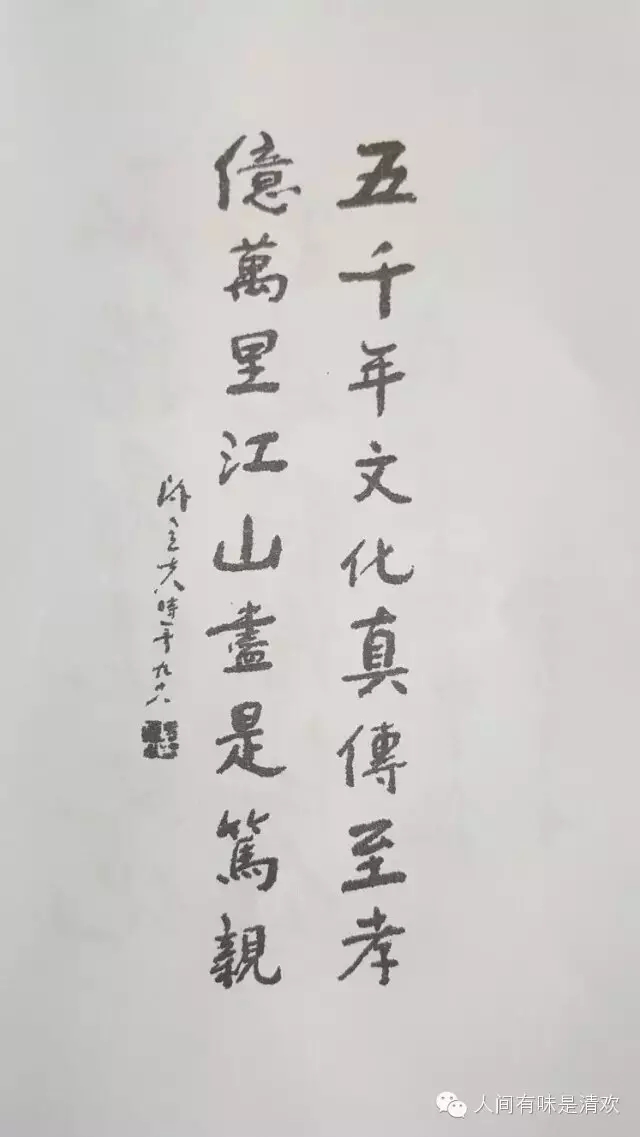 五千年文化真傳至孝
億萬里江山盡是篤親
立夫時年九十八
人间有味是清欢